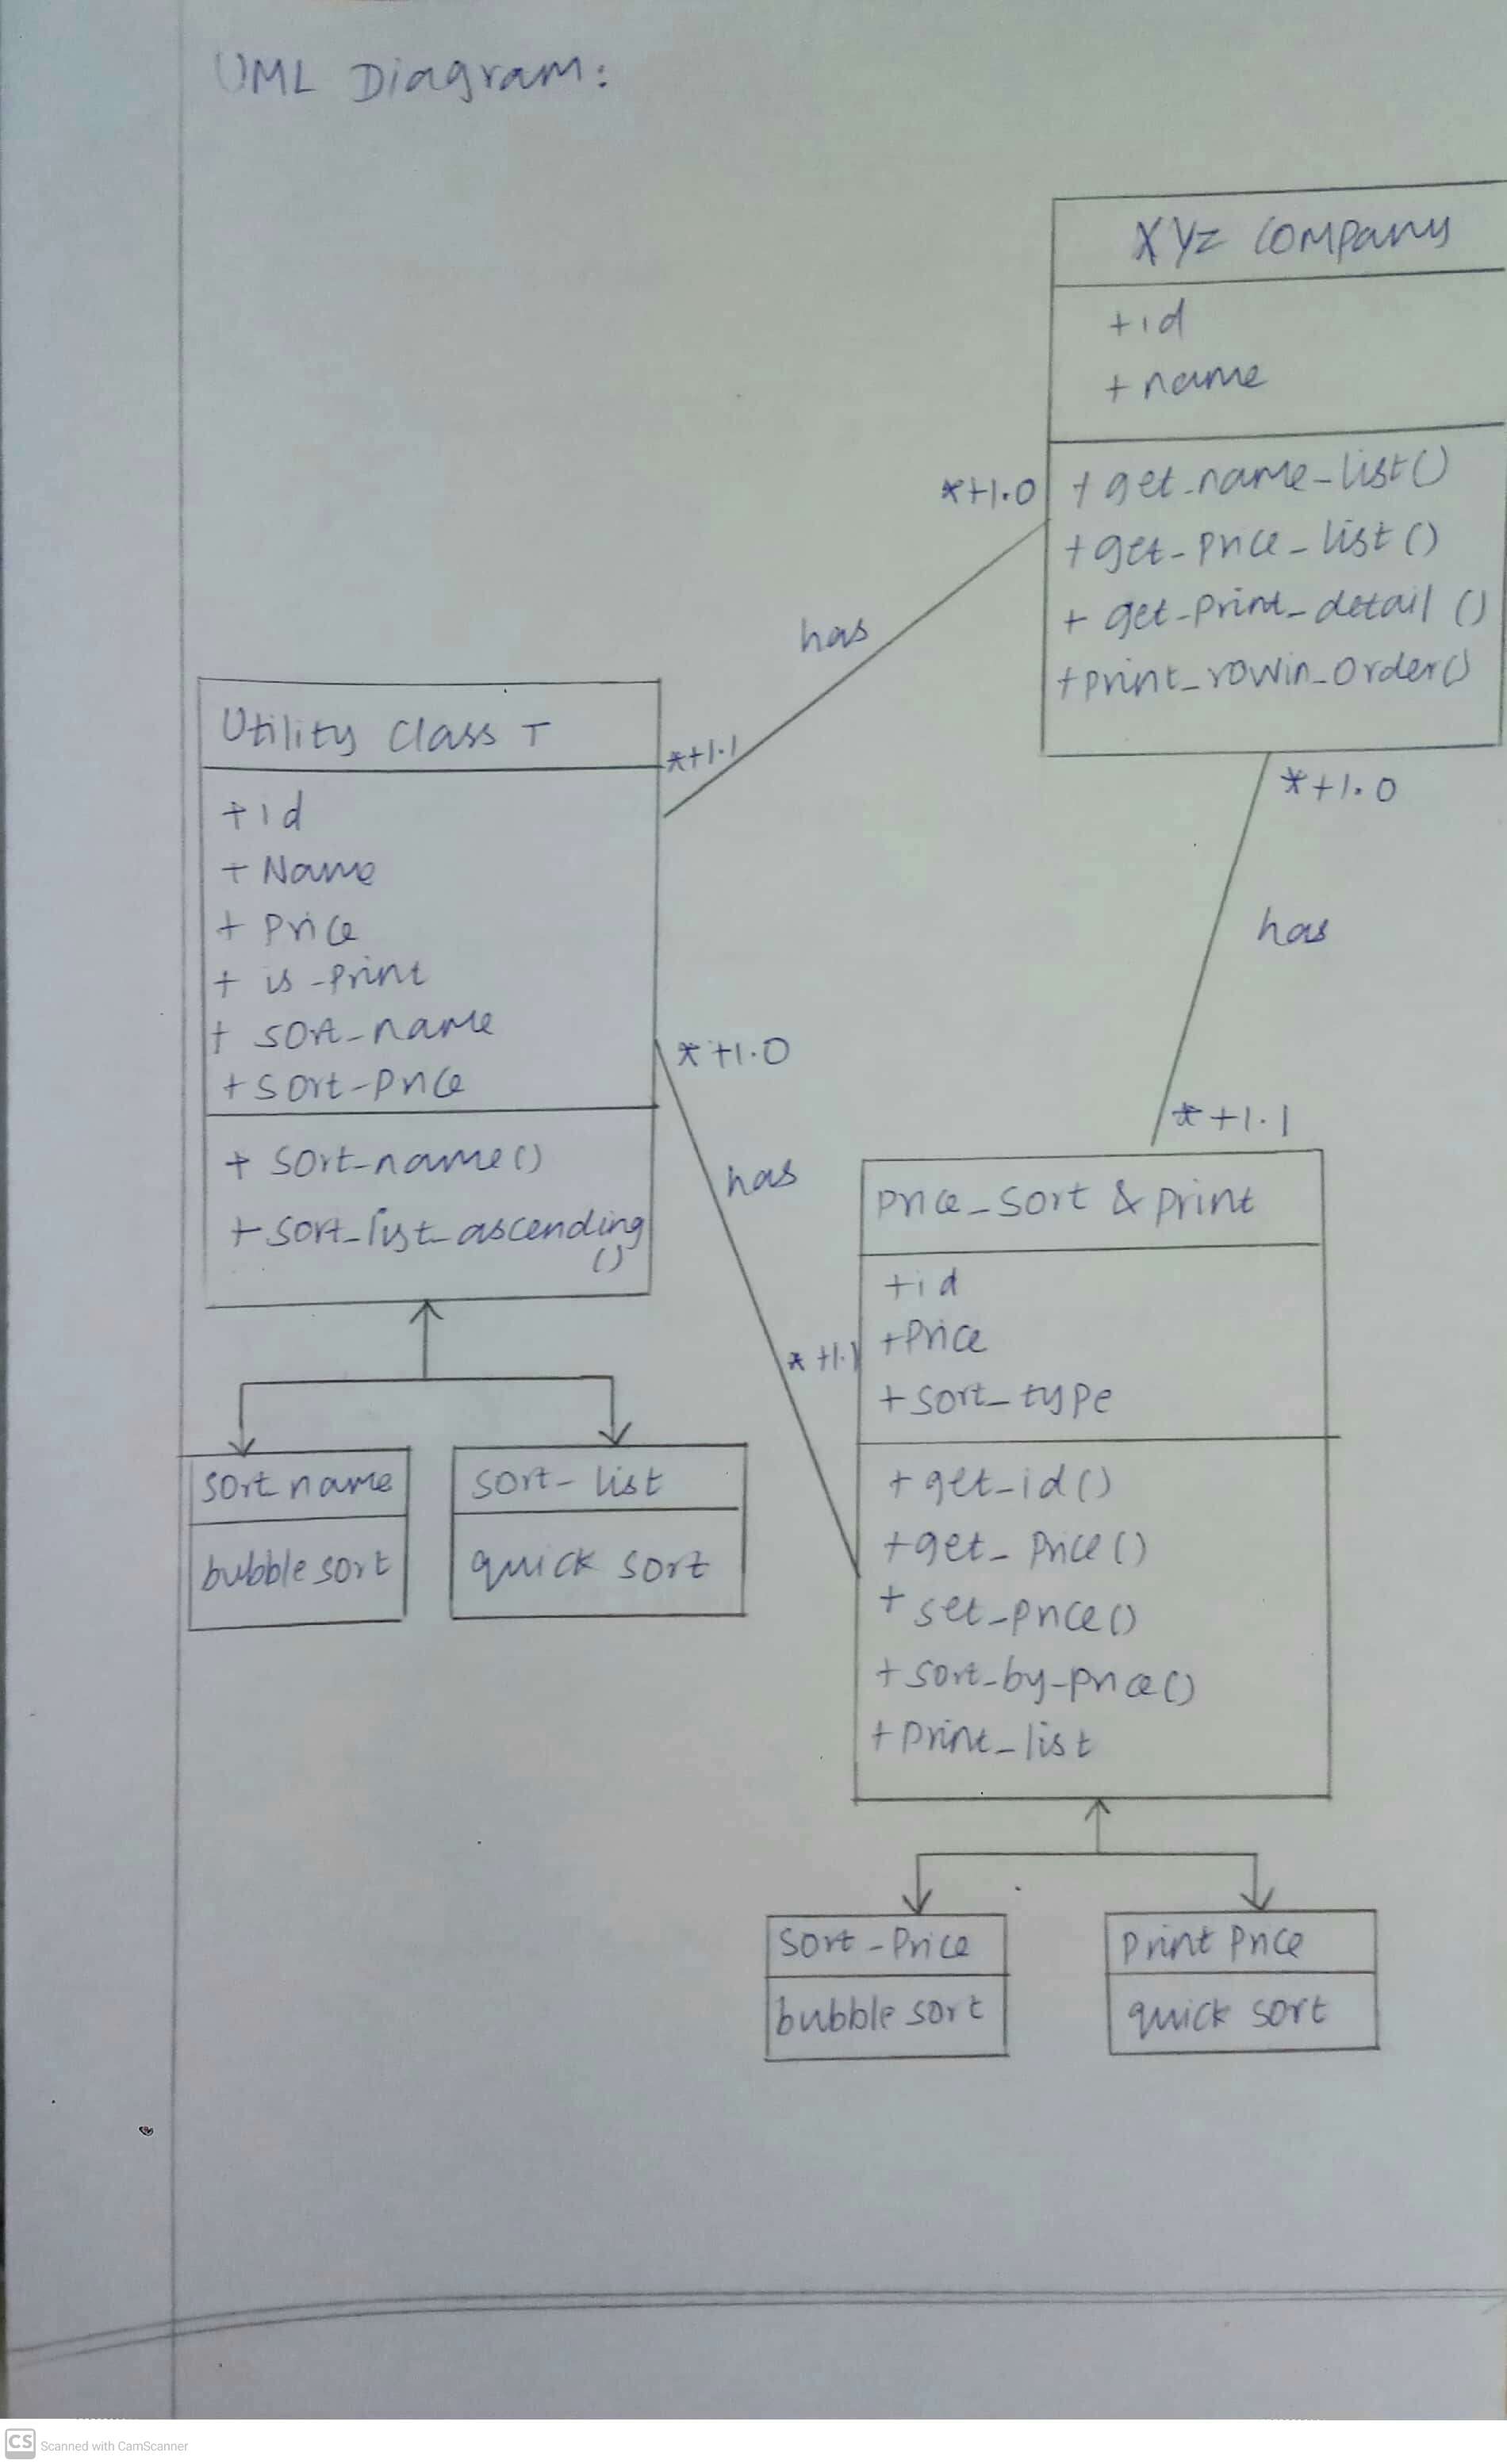 UML Diagram:
XYZ Company
+id
+ name
+ get_name_list()
+get_price_list()
+ get_print_detail ()
+print_rowin_order()
*+1.0
has
*+1.1
Utility class T
+id
+ Name
+ price
+ is-print
+ sort-name
+sort-price
+ sort-name()
+sort_list_ascending
()
*+1.0
has
*+1.1
*+1.0
has
*+1.1
price_sort & print
+id
+Price
+sort_type
+get_id()
+get_price()
+ set_price()
+sort_by_price()
+print_list
sort name
bubble sort
sort-list
quick sort
sort-Price
bubble sort
print price
quick sort
CS Scanned with CamScanner